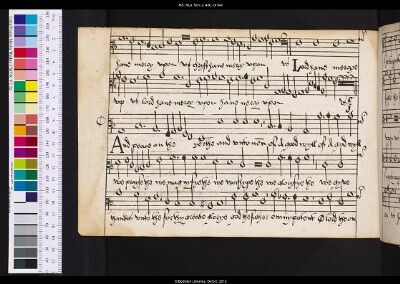 haue mercy upon us haue mercy upon us Lord haue mercye
vpo vs lord haue mercy upon haue mercy upon us
And peace on the erthe and vnto men of a good wyll of a good wyll
we prayse the we magnifie the we worshype the we glorifye the we gyve
thankes vnto the for thy greate glorye god the father omnipotent O lord the on
© Bodleian Libraries, Oxford, 2012